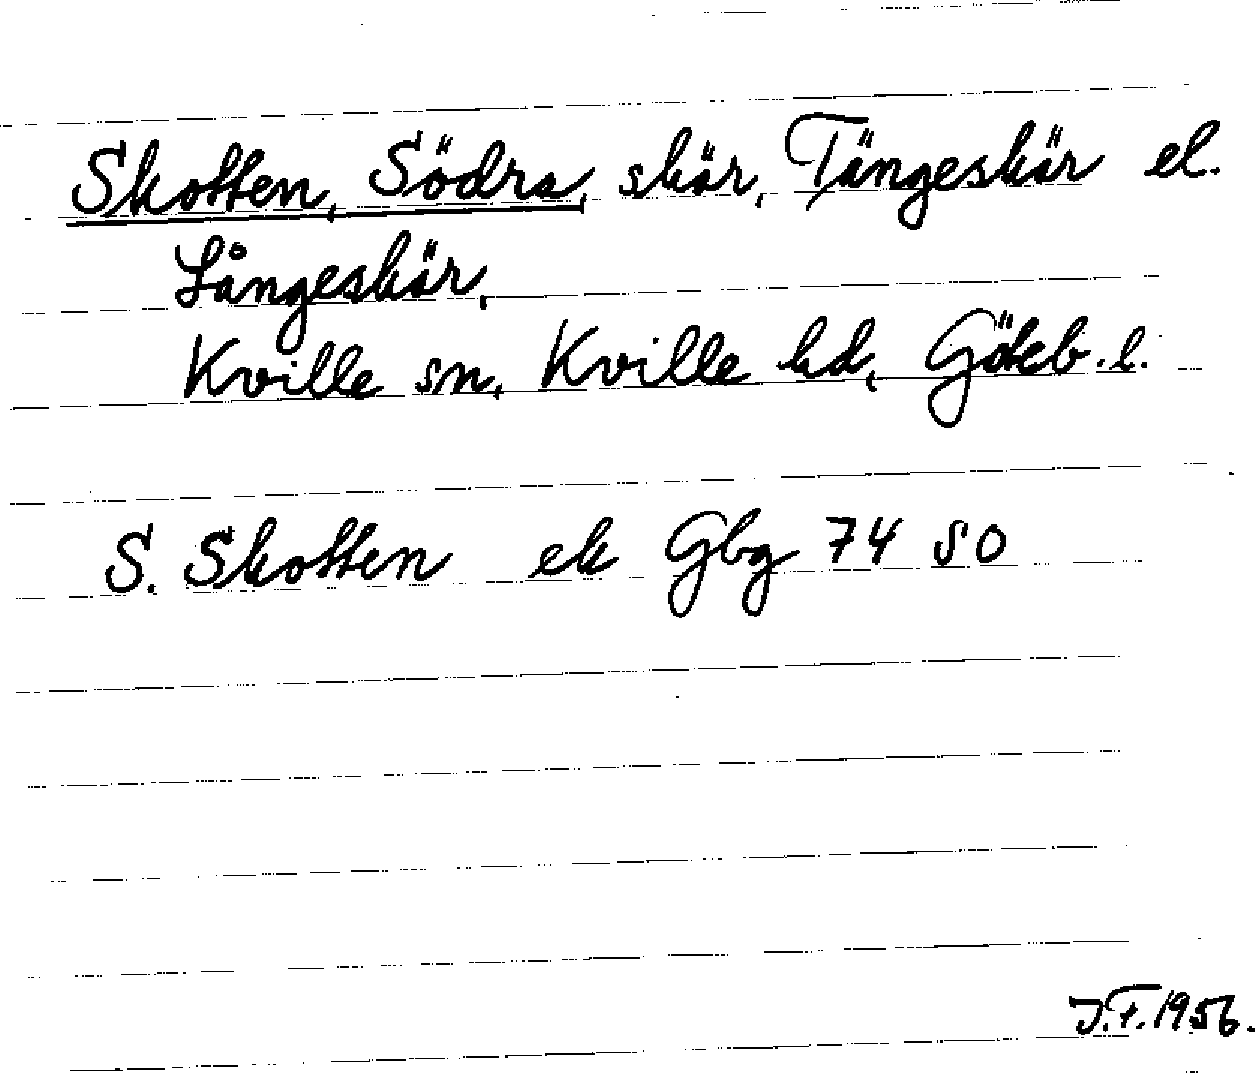 Skotten, Södra, skär, Tängeskär el.
Långeskär,
Kville sn, Kville hd, Göteb. l.
S. Skotten ek Gbg 74 SO
J.F. 1956.